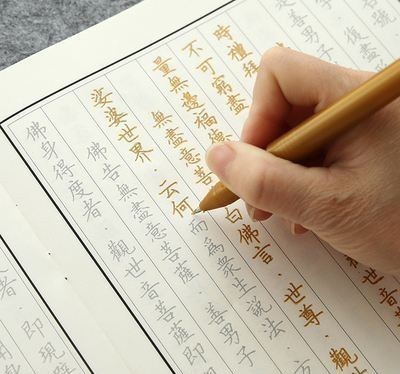 名號
復盡
善男子
時禮拜
不可窮盡
量無邊福德
無盡意菩
白佛言．世尊．觀
娑婆世界．云何而為眾生說法．方
佛告無盡意菩薩．善男子
佛身得度者．觀世音菩薩即
者．即現